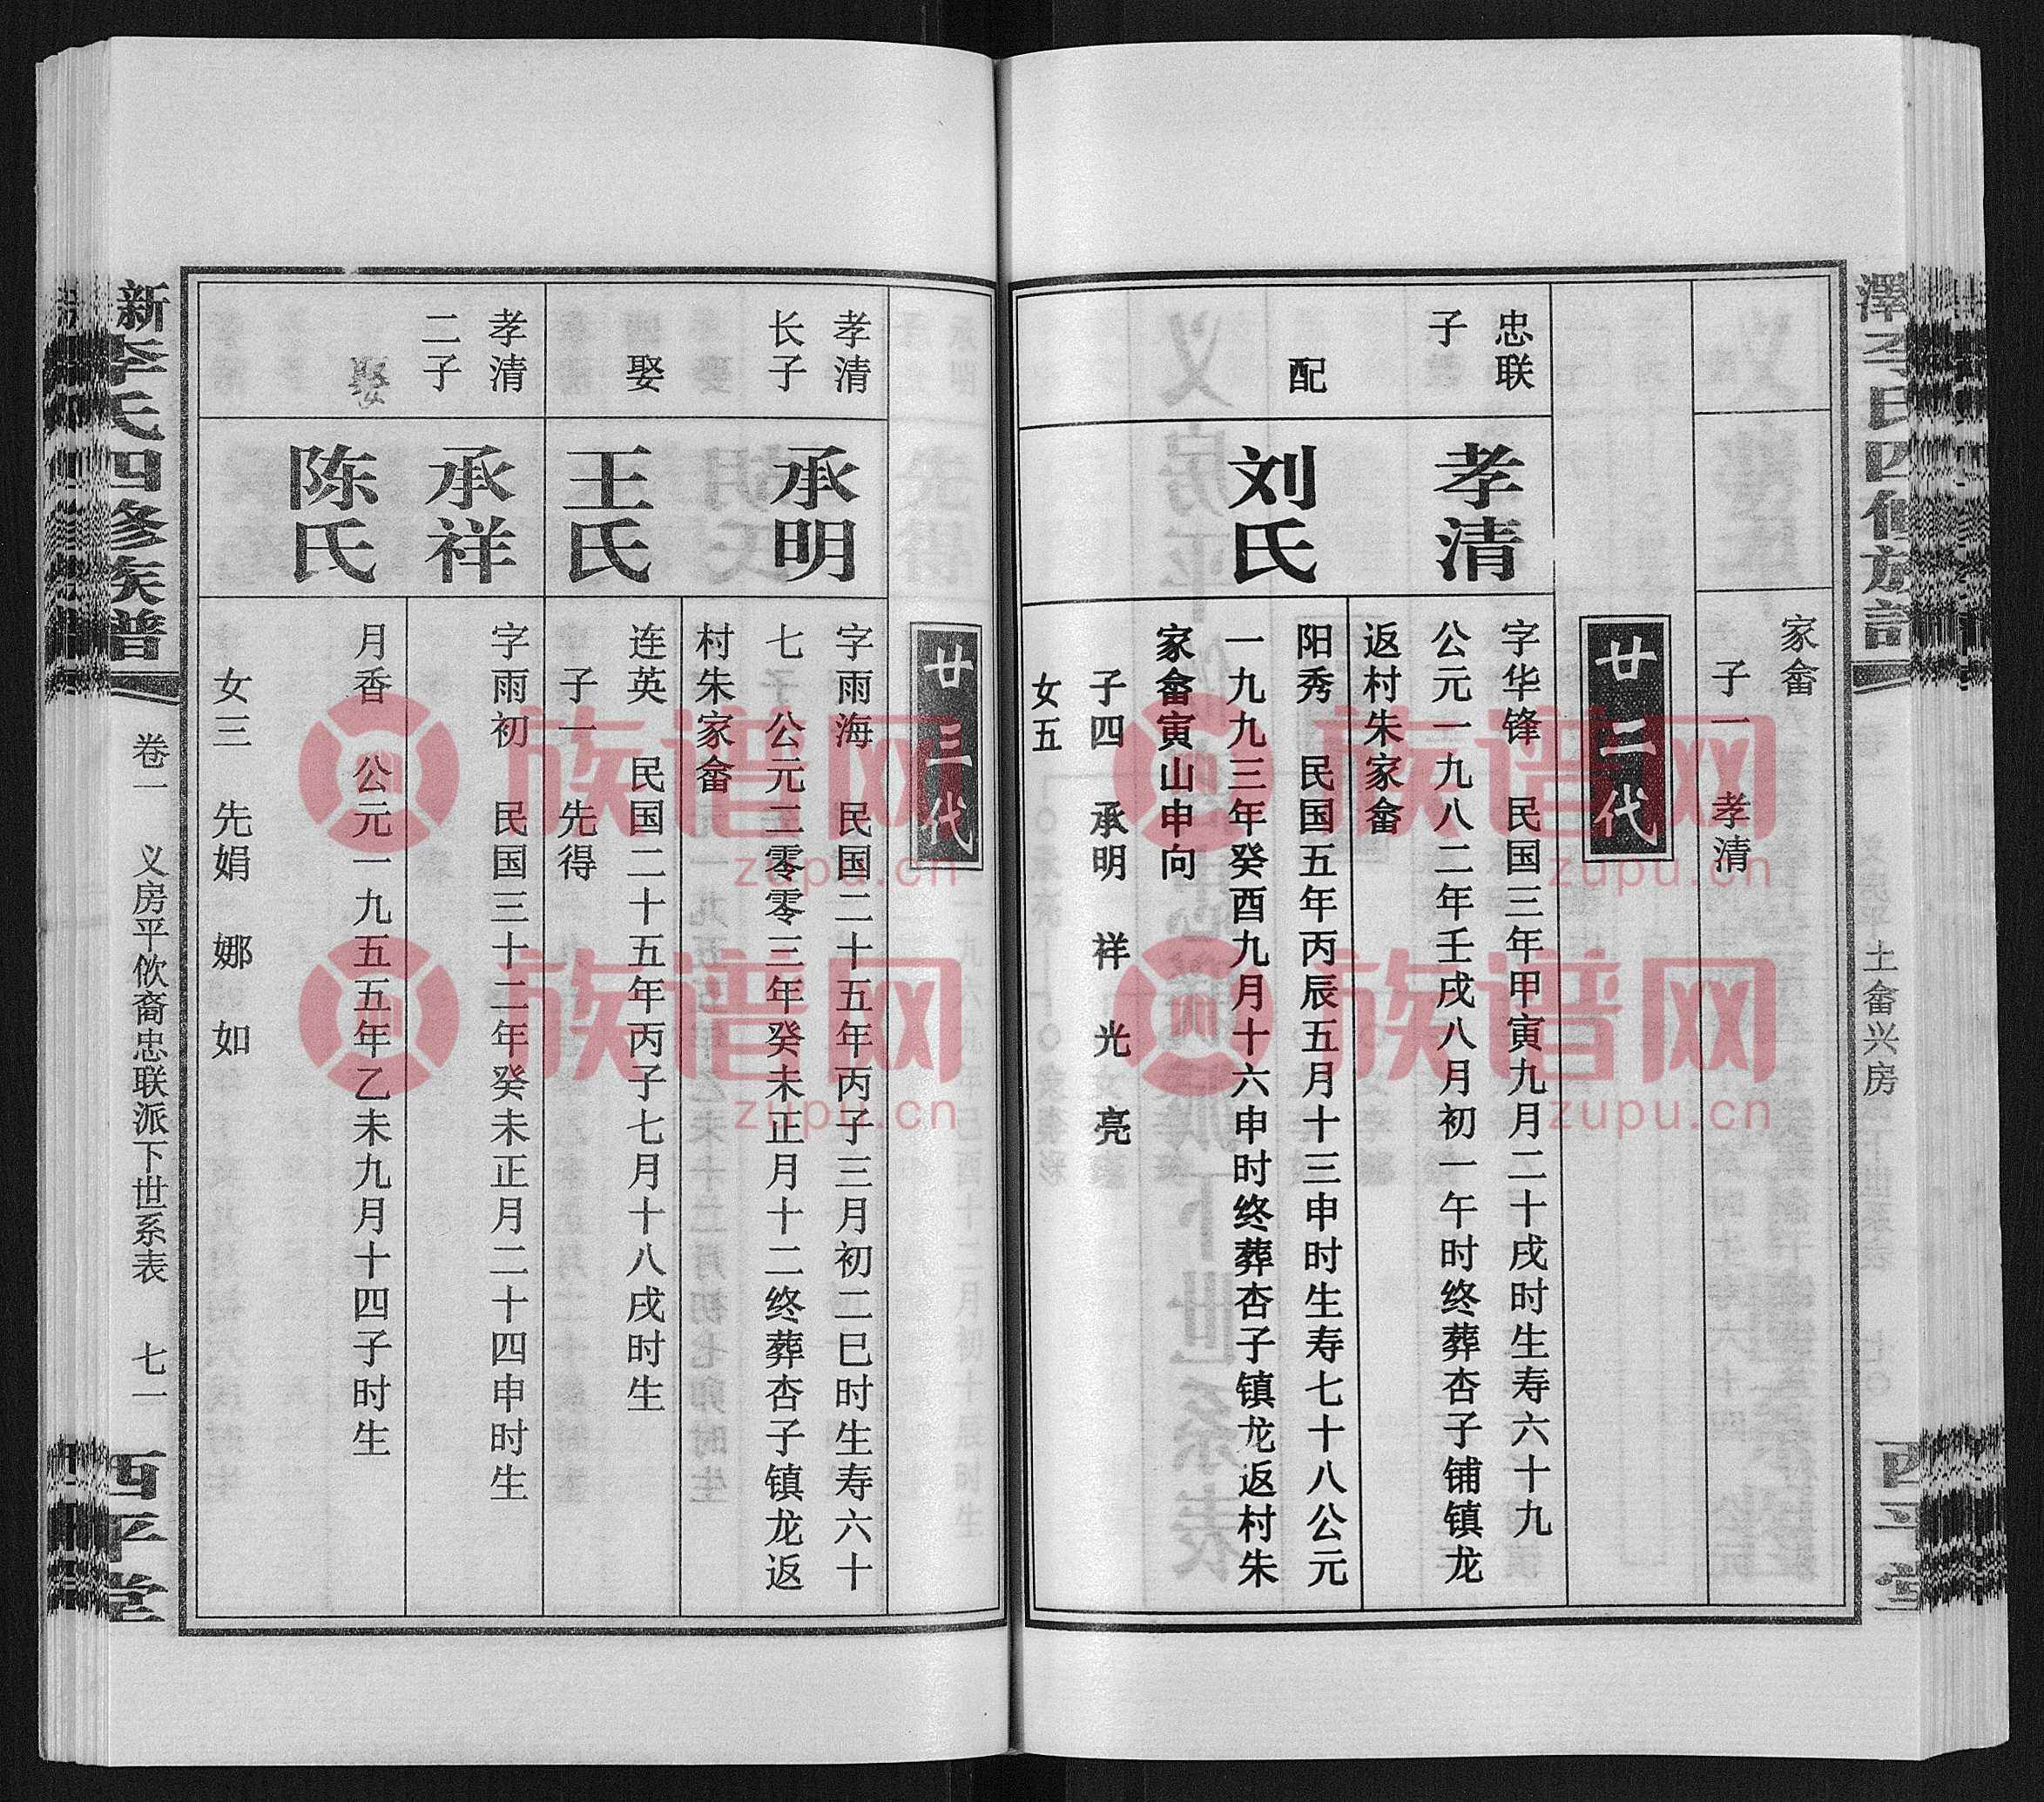 家畲
子一 孝清
廿二代
忠联
子
孝清
字华锋 民国三年甲寅九月二十戌时生寿六十九
公元一九八二年壬戌八月初一午时终葬杏子铺镇龙
返村朱家畲
配
刘氏
阳秀 民国五年丙辰五月十三申时生寿七十八公元
一九九三年癸酉九月十六申时终葬杏子镇龙返村朱
家畲寅山申向
子四 承明 祥 光 亮
女五
土畲兴房
廿三代
孝清
长子
承明
字雨海 民国二十五年丙子三月初二巳时生寿六十
七 公元二零零三年癸未正月十二终葬杏子镇龙返
村朱家畲
娶
王氏
连英 民国二十五年丙子七月十八戌时生
子一 先得
孝清
二子
承祥
字雨初 民国三十二年癸未正月二十四申时生
娶
陈氏
月香 公元一九五五年乙未九月十四子时生
女三 先娟 娜 如
新李氏四修族谱
卷一 义房平佽裔忠联派下世系表 七一
西平堂
族谱网
zupu.cn
族谱网
zupu.cn
族谱网
zupu.cn
族谱网
zupu.cn